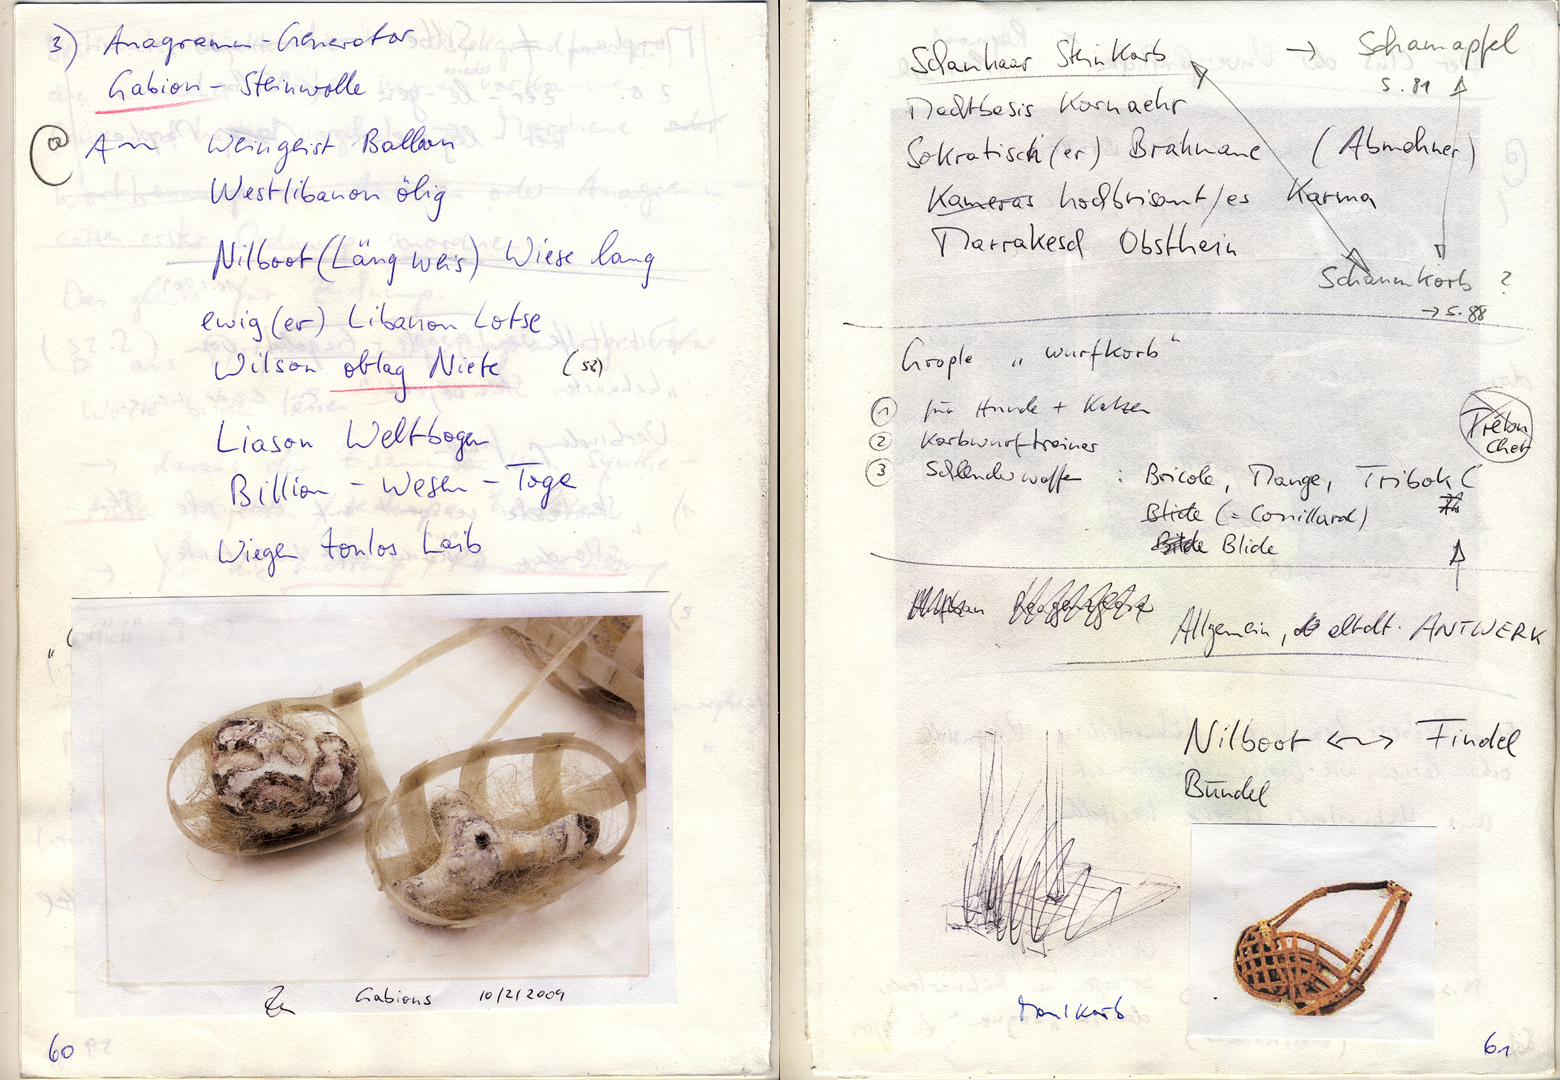 3) Anagramm-Generator
Gabion - Steinwolle
@ Am Weingeist Ballon
Westlibanon ölig
Nilboot (Längweis) Wiese lang
ewig(er) Libanon Lotse
Wilson oblag Niete (52)
Liason Weltbogen
Billion - Wesen - Toge
Wiegen tonlos Laib
Gabions 10/2/2009
60
Schamhaar Steinkorb → Schamapfel
S. 81
Nachtbasis Kornaehr
Sokratisch(er) Brahmane (Abmahner)
Kameras hochbrisant/es Karma
Marrakesch Obsthein
Schamkorb ?
→ S. 88
Google „Wurfkorb"
1 für Hunde + Katzen
2 Korbwurftrainer
3 Schleuderwaffe : Bricole, Mange, Tribok (
Trébuchet
Blide (= Couillard)
Blide
Allgemein, altdt. ANTWERK
Nilboot ↔ Findel
Bündel
Maulkorb
61